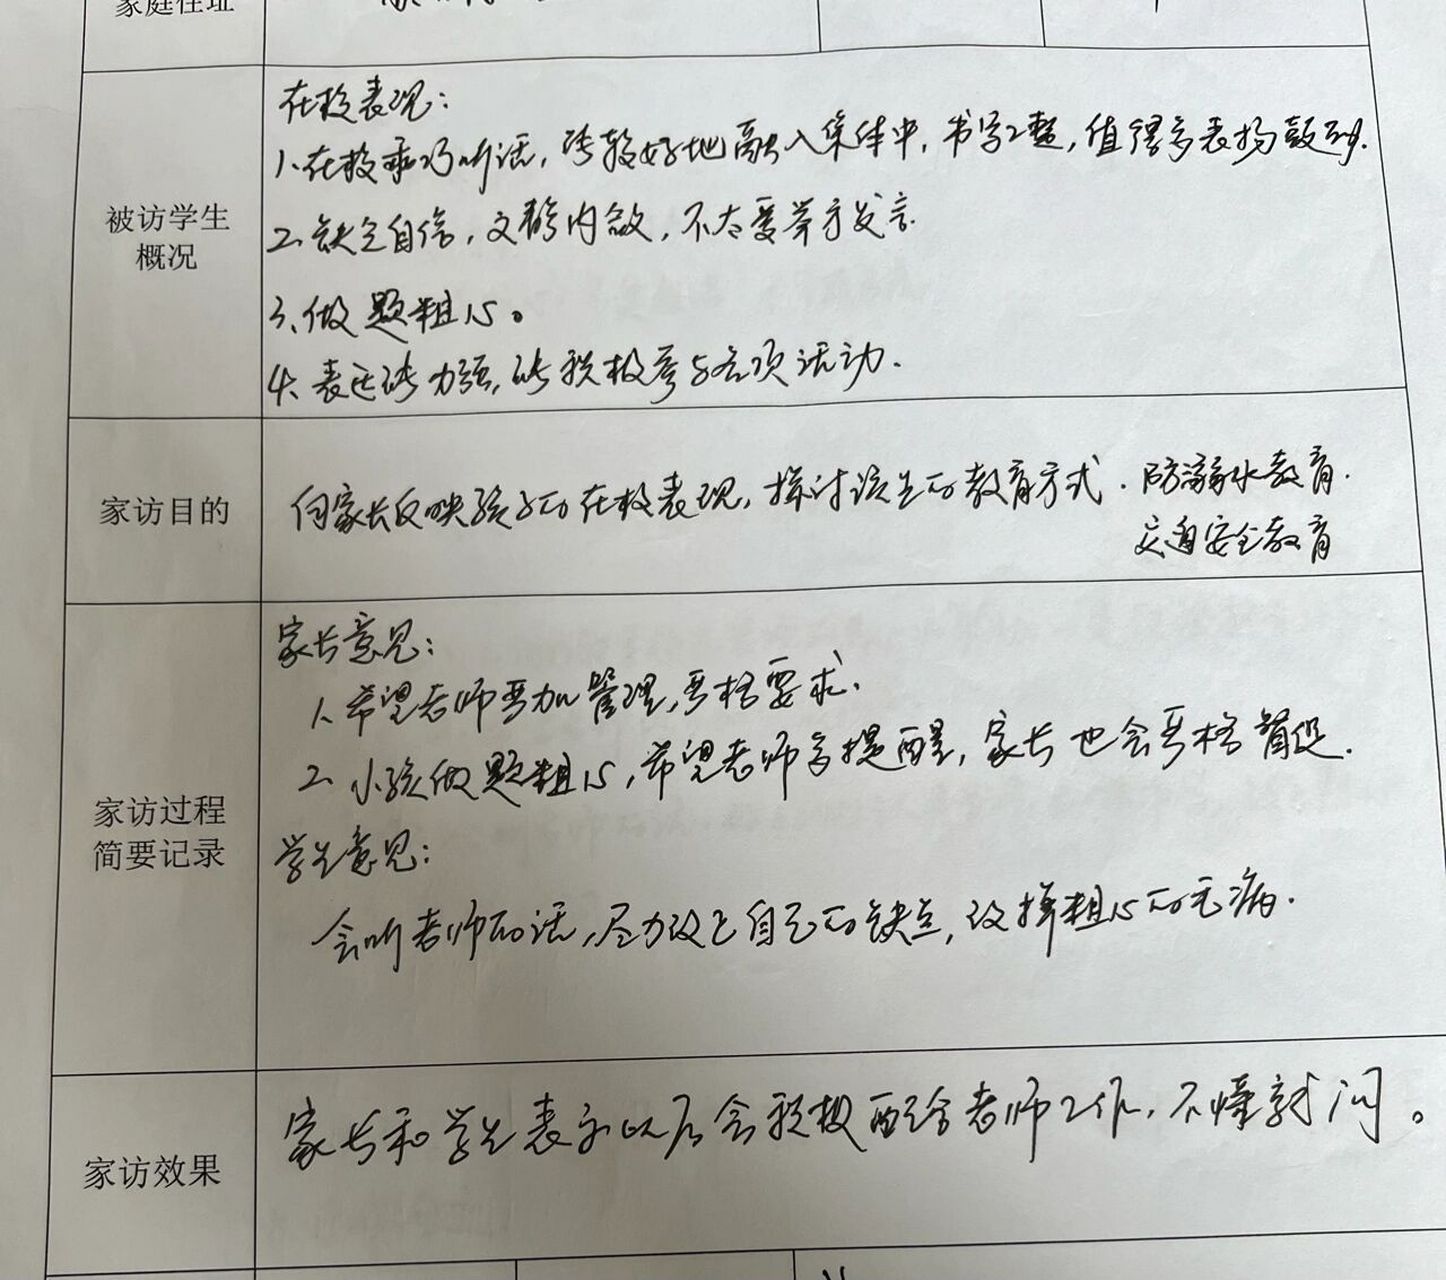 家庭住址
在校表现：
1.在校乖巧听话，能较好地融入集体中，书写工整，值得多表扬鼓励.
被访学生
概况
2.缺乏自信，文静内敛，不太爱举手发言.
3.做题粗心。
4.表达能力强，能积极参与各项活动.
家访目的
向家长反映孩子的在校表现，探讨该生的教育方式.防溺水教育.
交通安全教育
家长意见：
1.希望老师严加管理，严格要求.
2.小孩做题粗心，希望老师多提醒，家长也会严格督促.
家访过程
简要记录
学生意见：
会听老师的话，尽力改正自己的缺点，改掉粗心的毛病.
家访效果
家长和学生表示以后会积极配合老师工作，不懂就问。